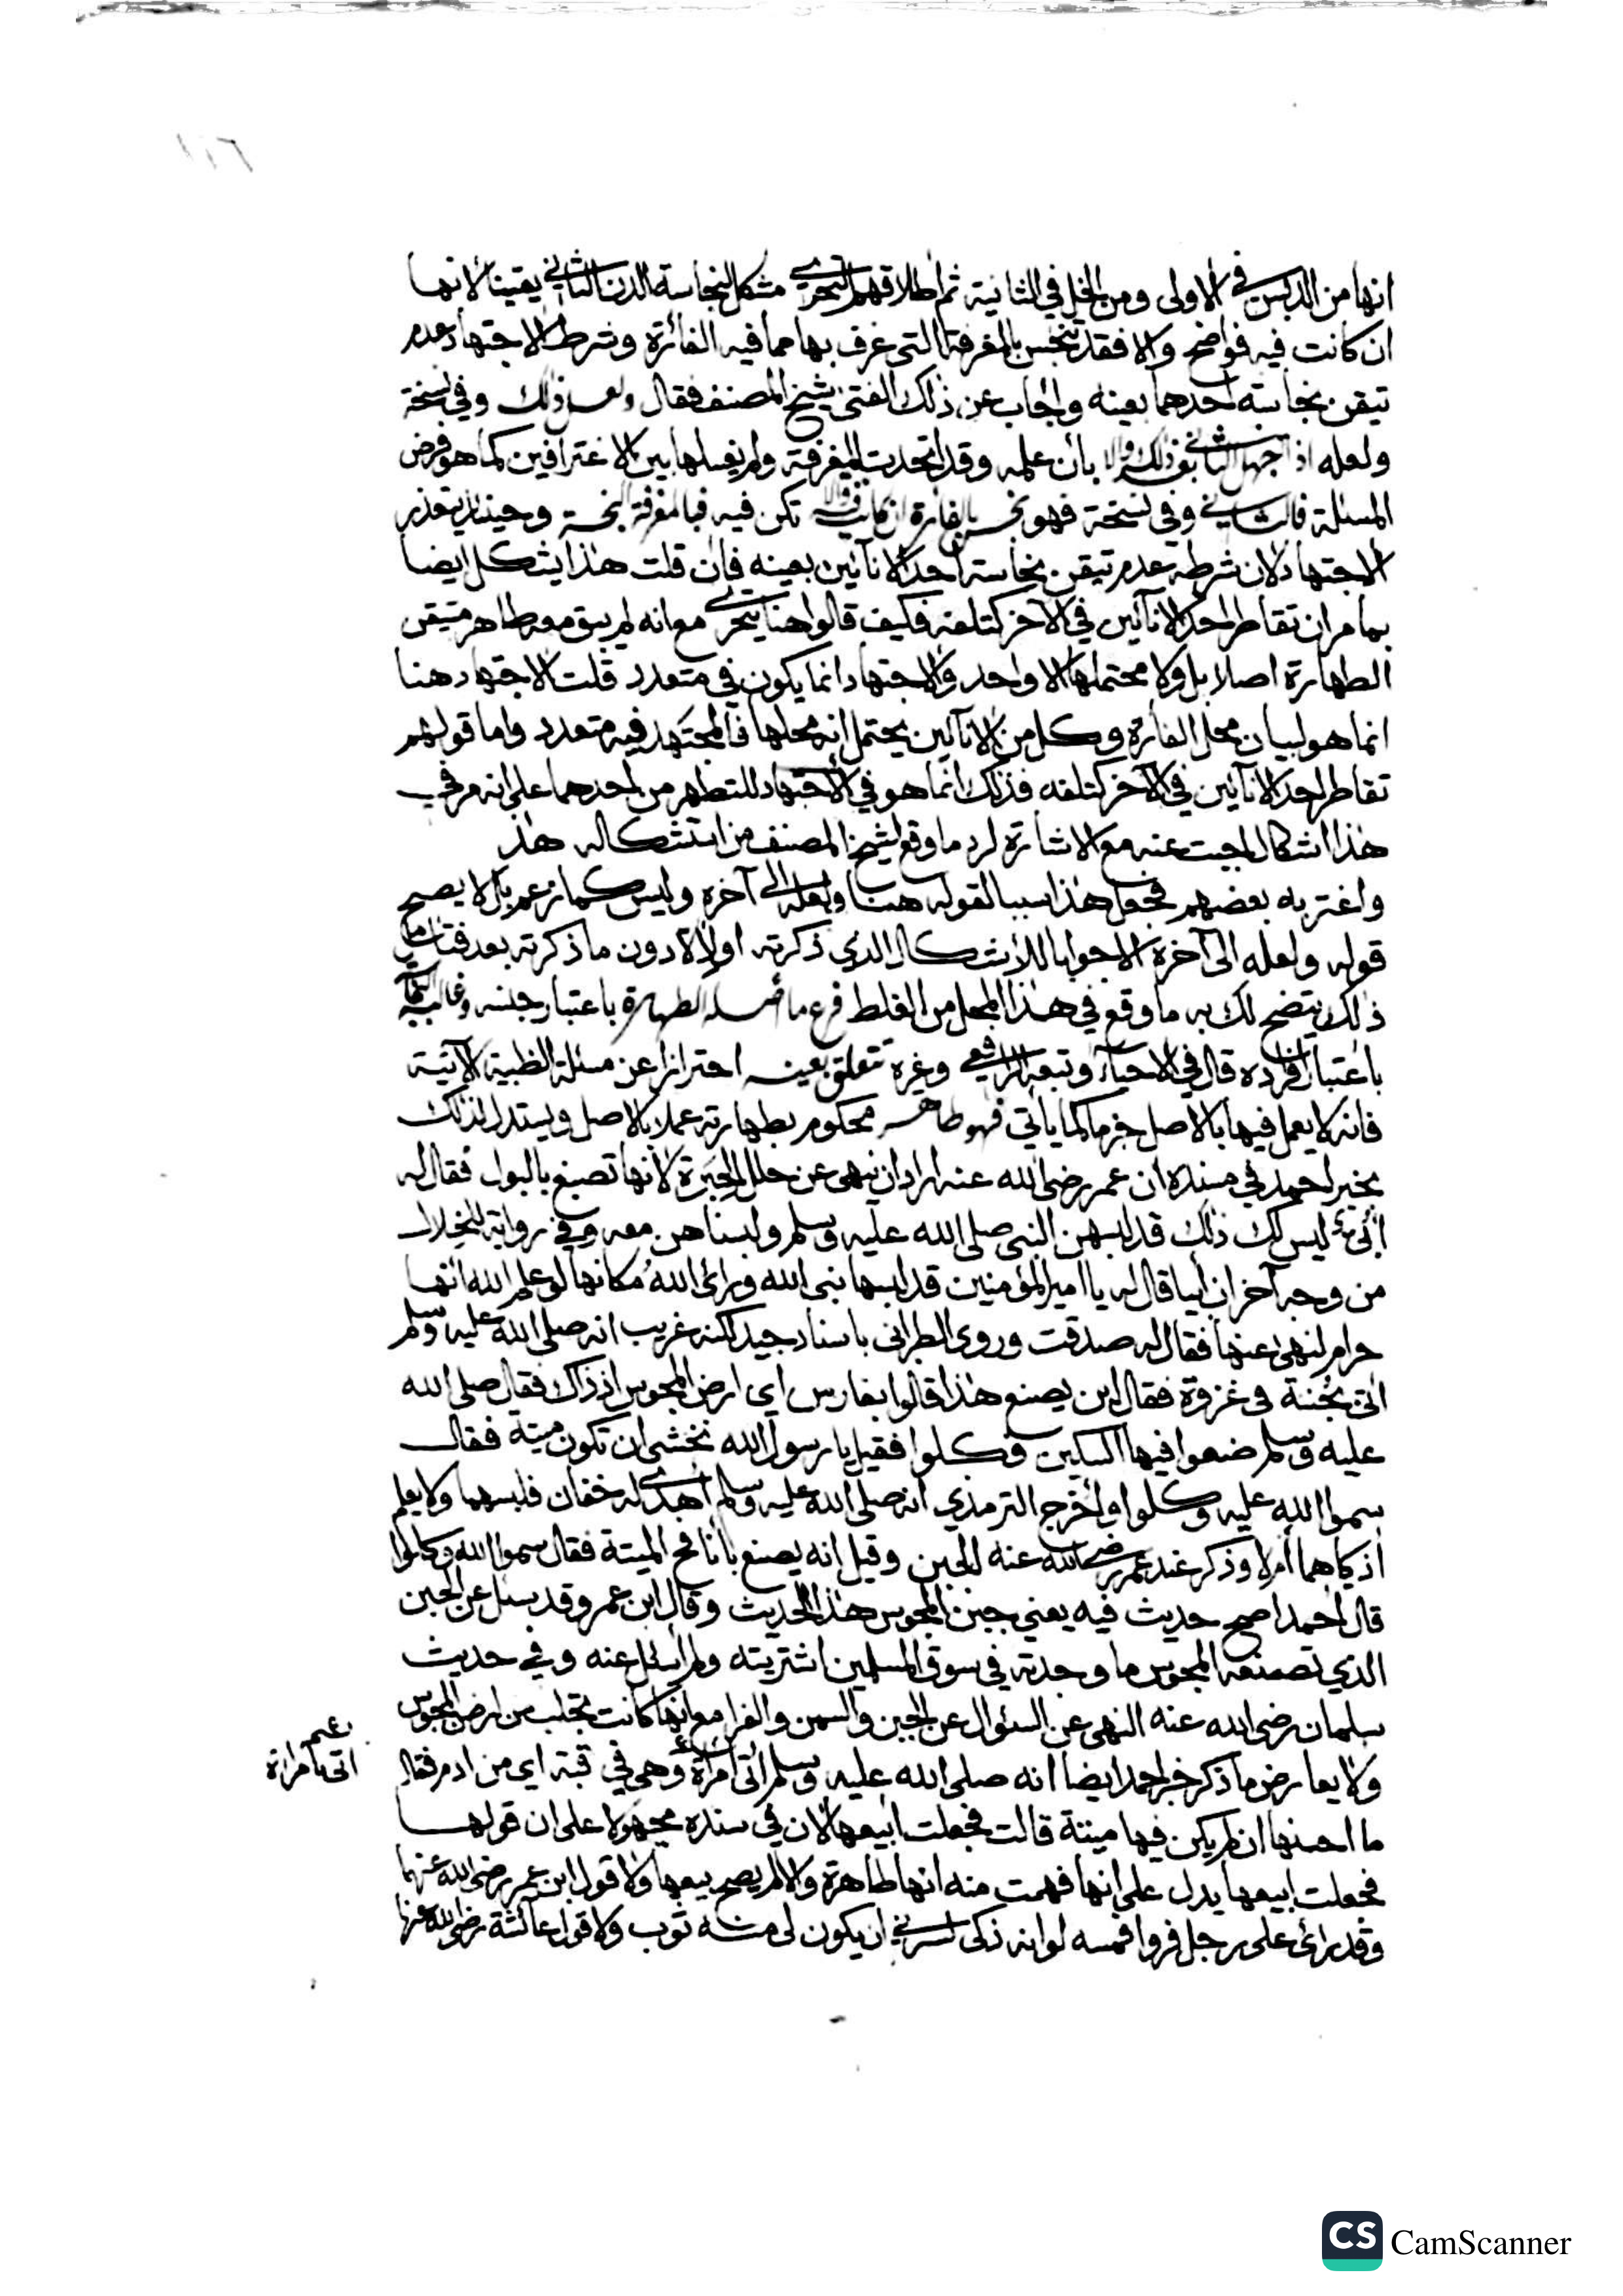 ١١٦
انها من الدبس في الاولى ومن الخل في الثانية ثم اطلاقهم التحري مشكل لنجاسة الدن الثاني يقينا لانها
ان كانت فيه فواضح والا فقد تنجس بالمغرفة التي غرف بها مما فيه الفائرة وشرط الاجتهاد عدم
تيقن نجاسة احدهما بعينه واجاب عن ذلك الفتى شيخ المصنف فقال ولعل ذلك وفي نسخة
ولعله اذا جهل الثاني بان علمه وقد اتحدت المغرفة ولم يغسلها بين الاغترافين كما هو فرض
المسئلة فالثاني وفي نسخة فهو نجس بالفارة ان كانت فيه والا تكن فيه فبالمغرفة النجسة وحينئذ يتعذر
الاجتهاد لان شرطه عدم تيقن نجاسة احد الانآئين بعينه فان قلت هذا يشكل ايضا
بما مر ان تقاطر احد الانآئين في الاخر كتلفه فكيف قالوا هنا يتحرى مع انه لم يبق معه طاهر متيقن
الطهارة اصلا بل ولا محتملها الا واحد والاجتهاد انما يكون في متعدد قلت الاجتهاد هنا
انما هو لبيان محل الفأرة وكل من الانآئين يحتمل انه محلها فالمجتهد فيه متعدد واما قولهم
تقاطر احد الانآئين في الآخر كتلفه فذلك انما هو في الاجتهاد للتطهر من احدهما على انه مر في
هذا اشكال اجبت عنه مع الاشارة لرد ما وقع لشيخ المصنف من استشكاله هذا
واغتر به بعضهم فجعل هذا سببا لقوله هنا ولعله الى آخره وليس كما زعم بل لا يصح
قوله ولعله الى آخره الا جوابا للاشكال الذي ذكرته اولا دون ما ذكرته بعد فتامل
ذلك يتضح لك به ما وقع في هذا المحل من الغلط فرع ما اصله الطهارة باعتبار جنسه وغالب
باعتبار افراده قال في الاحياء وتبعه الرافعي وغيره تتعلق بعينه احترازا عن مسئلة الظبية الآتية
فانه لا يعمل فيها بالاصل جزما كما ياتي فهو طاهر محكوم بطهارته عملا بالاصل ويستدل لذلك
بخبر احمد في مسنده ان عمر رضي الله عنه اراد ان ينهى عن حلل الحبرة لانها تصبغ بالبول فقال له
ابي ليس لك ذلك قد لبسهن النبي صلى الله عليه وسلم ولبسناهن معه وفي رواية للخلال
من وجه آخر ان ابيا قال له يا امير المؤمنين قد لبسها نبي الله ورأى الله مكانها لو علم الله انها
حرام لنهى عنها فقال له صدقت وروى الطبراني باسناد جيد لكنه غريب انه صلى الله عليه وسلم
اتى بجبنة في غزوة فقال اين يصنع هذا قالوا بفارس اي ارض المجوس اذ ذاك فقال صلى الله
عليه وسلم ضعوا فيها السكين وكلوا فقيل يا رسول الله نخشى ان تكون ميتة فقال
سموا الله عليه وكلوا واخرج الترمذي انه صلى الله عليه وسلم اهدى له خفان فلبسهما ولا يعلم
اذكيا هما ام لا وذكر عند عمر رضي الله عنه الجبن وقيل انه يصنع بانافح الميتة فقال سموا الله وكلوا
قال احمد اصح حديث فيه يعني جبن المجوس هذا الحديث وقال ابن عمر وقد سئل عن الجبن
الذي تصنعه المجوس ما وجدته في سوق المسلمين اشتريته ولم اسئل عنه وفي حديث
سلمان رضي الله عنه النهي عن السئوال عن الجبن والسمن والفرا مع انها كانت تجلب من ارض المجوس
ولا يعارض ما ذكر خبر احمد ايضا انه صلى الله عليه وسلم اتى امرأة وهي في قبة اي من ادم فقال
اتى بامراة
ما احسنها ان لم يكن فيها ميتة قالت فجعلت ابيعها لان في سنده مجهولا على ان قولها
فجعلت ابيعها يدل على انها فهمت منه انها طاهرة والا لم يصح بيعها ولا قول ابن عمر رضي الله عنهما
وقد رأى على رجل فروا فمسه لو انه ذكى لسرني ان يكون لي منه ثوب ولا قول عائشة رضي الله عنها
CS CamScanner